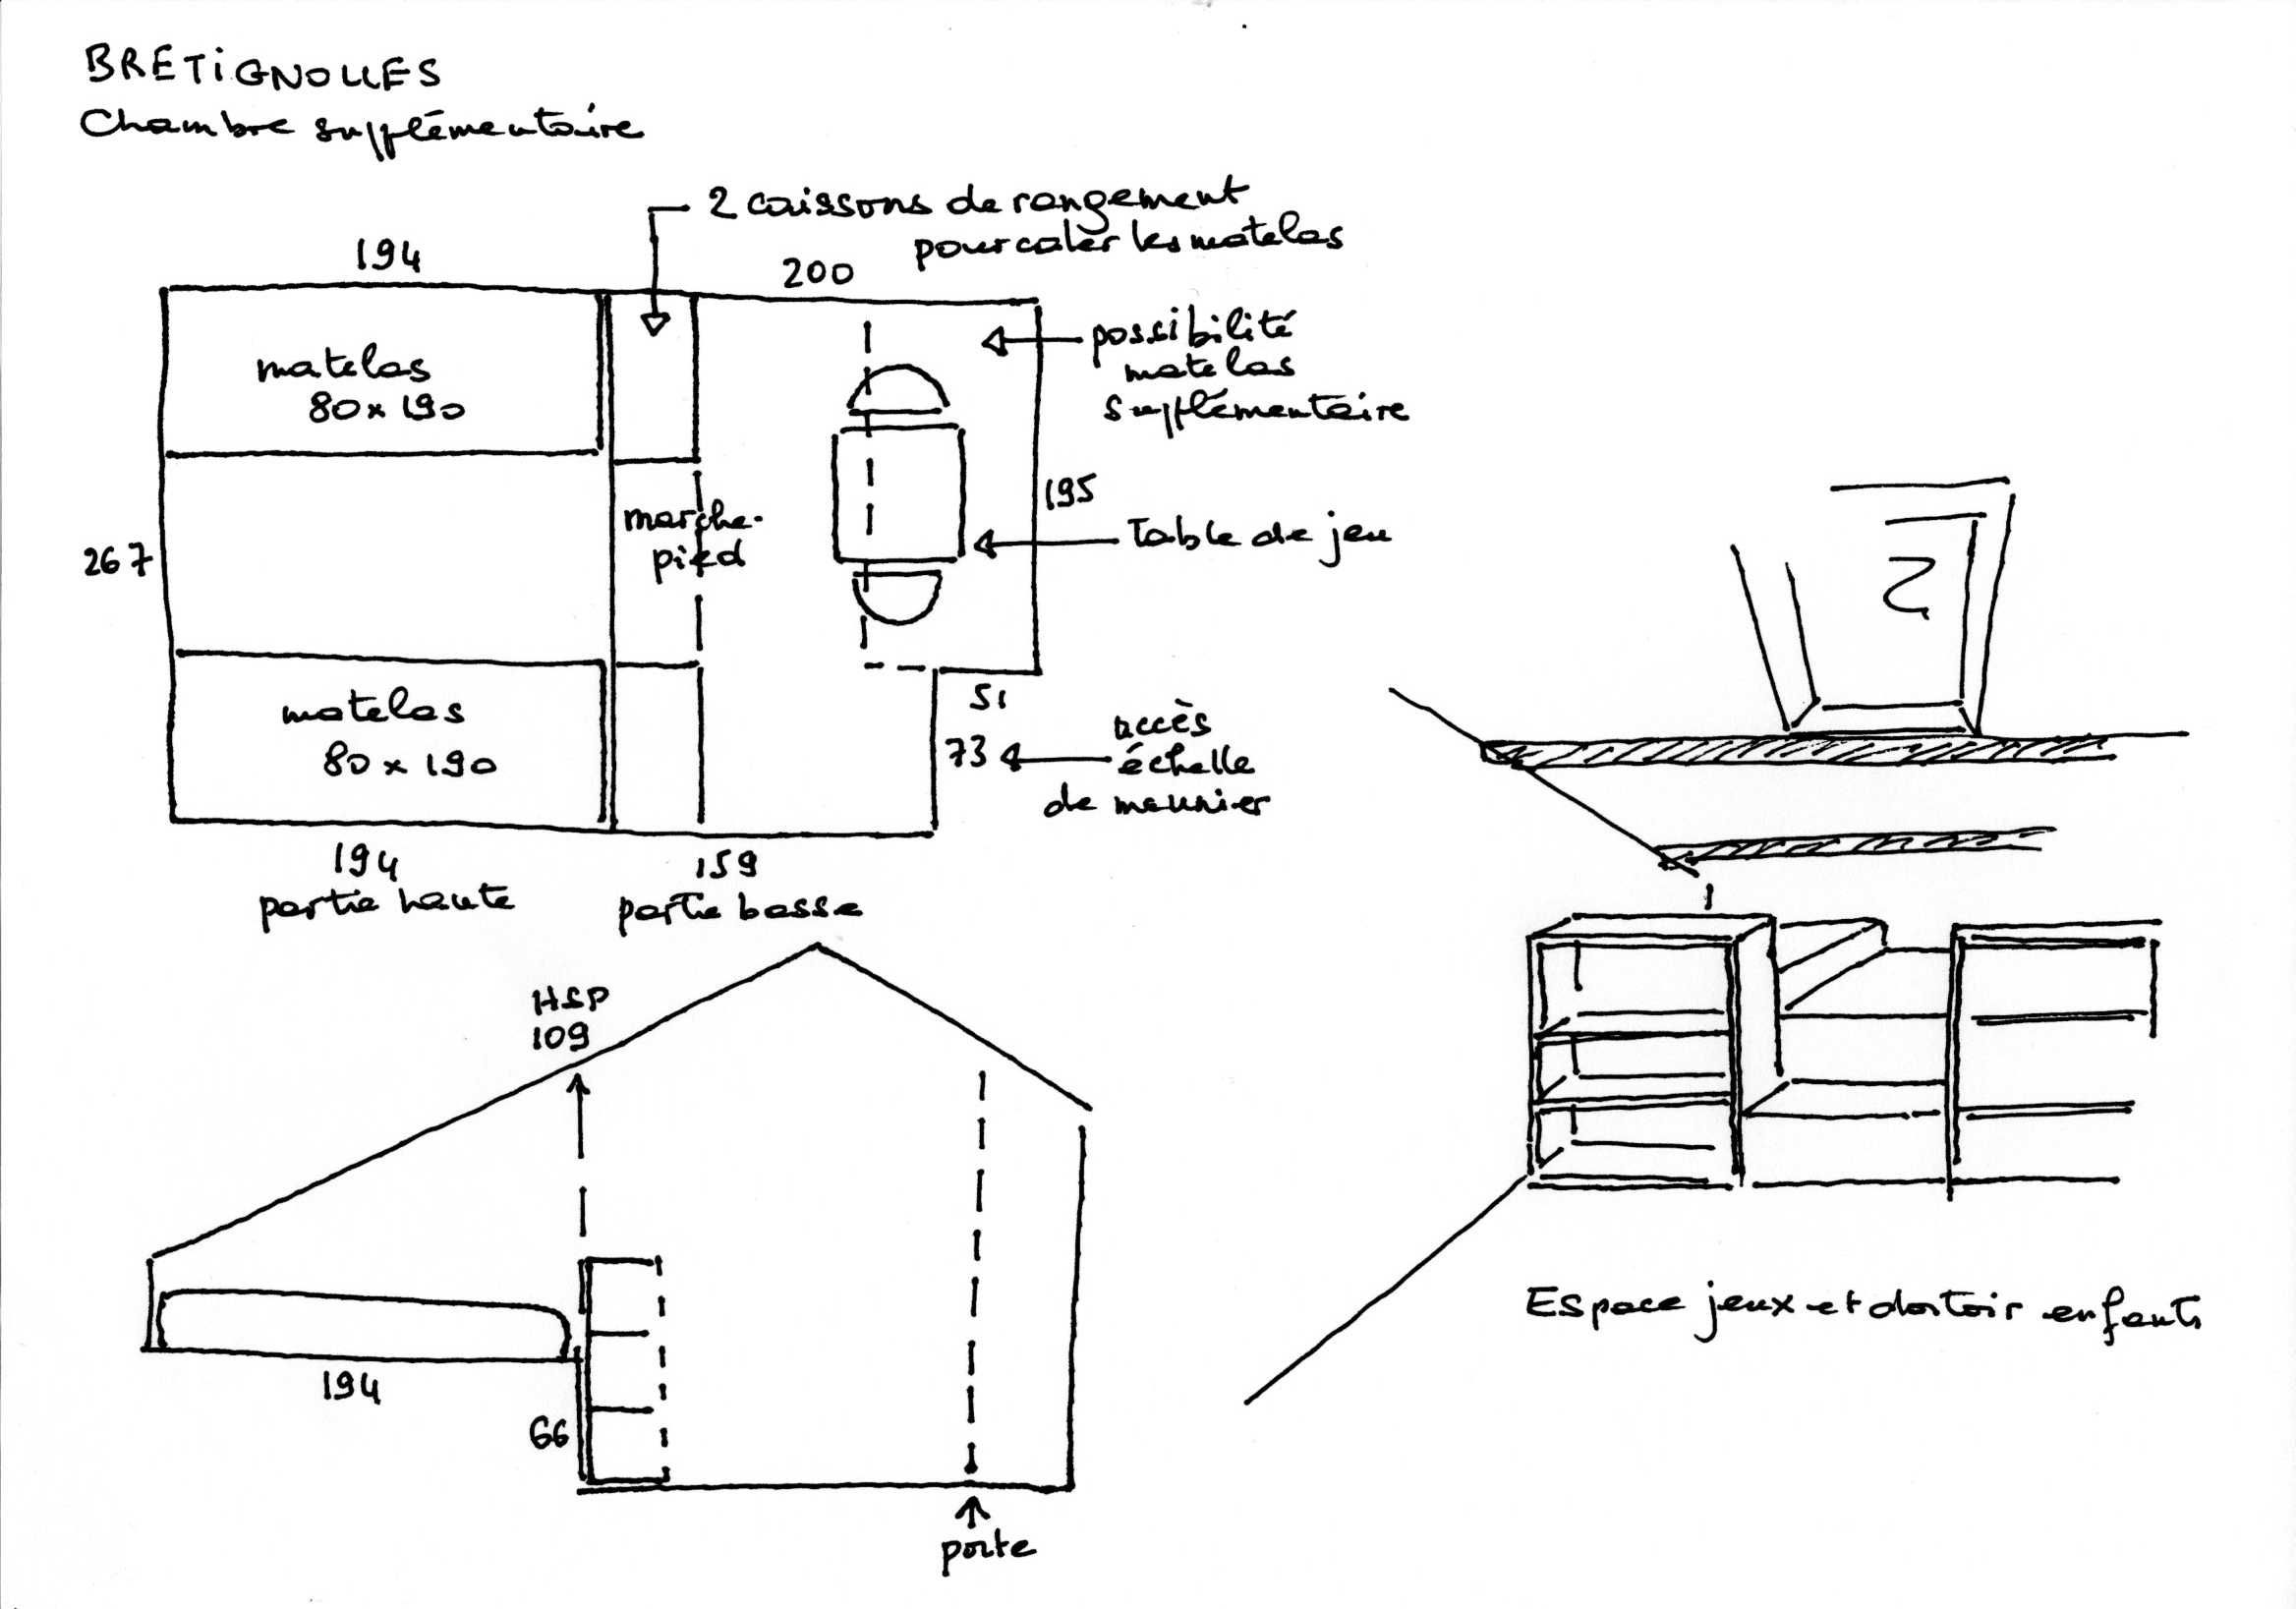 BRETIGNOLLES
Chambre supplémentaire
2 caissons de rangement
pour caler les matelas
194
200
possibilité
matelas
supplémentaire
matelas
80 x 190
195
marche-
pied
Table de jeu
267
51
accès
73
échelle
de meunier
matelas
80 x 190
194
159
partie haute
partie basse
HSP
109
194
66
porte
Espace jeux et dortoir enfants